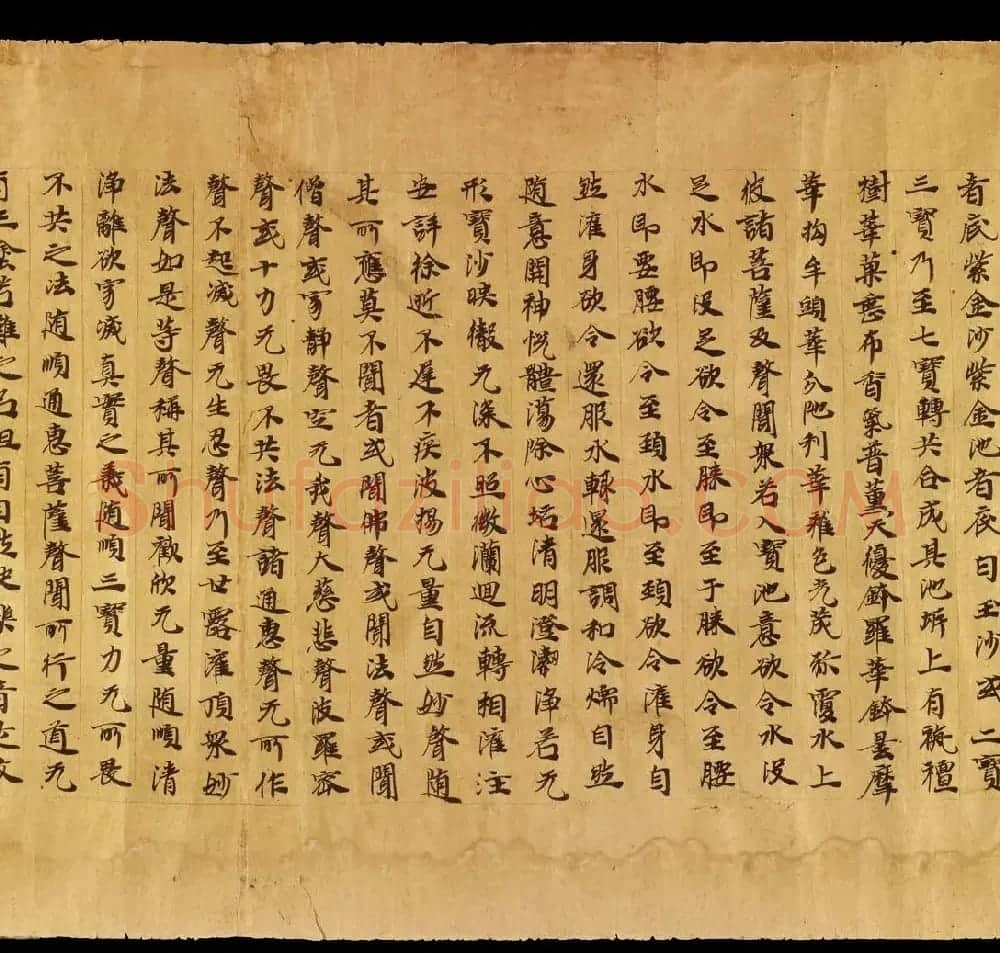 者底紫金沙紫金池者底白玉沙或二寶
三寶乃至七寶轉共合成其池岍上有栴檀
樹華菓垂布香氣普薰天優鉢羅華鉢曇摩
華拘牟頭華分陁利華雜色光茂弥覆水上
彼諸菩薩及聲聞衆若入寶池意欲令水没
足水即没足欲令至膝即至于膝欲令至腰
水即至腰欲令至頚水即至頚欲令灌身自
然灌身欲令還服水輙還服調和冷煖自然
随意開神悅體蕩除心垢清明澄潔浄若无
形寶沙映徹无深不照微瀾迴流轉相灌注
安詳徐逝不遅不疾波揚无量自然妙聲随
其所應莫不聞者或聞佛聲或聞法聲或聞
僧聲或寂静聲空无我聲大慈悲聲波羅蜜
聲或十力无畏不共法聲諸通惠聲无所作
聲不起滅聲无生忍聲乃至甘露灌頂衆妙
法聲如是等聲稱其所聞歡欣无量随順清
浄離欲寂滅真實之義随順三寶力无所畏
不共之法随順通惠菩薩聲聞所行之道无
有三塗苦難之名但有自然快樂之音是故
Shufaziliao.COM